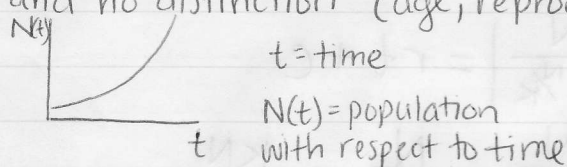 and no distinction (age, repro
N(t)
t = time
N(t) = population
t with respect to time